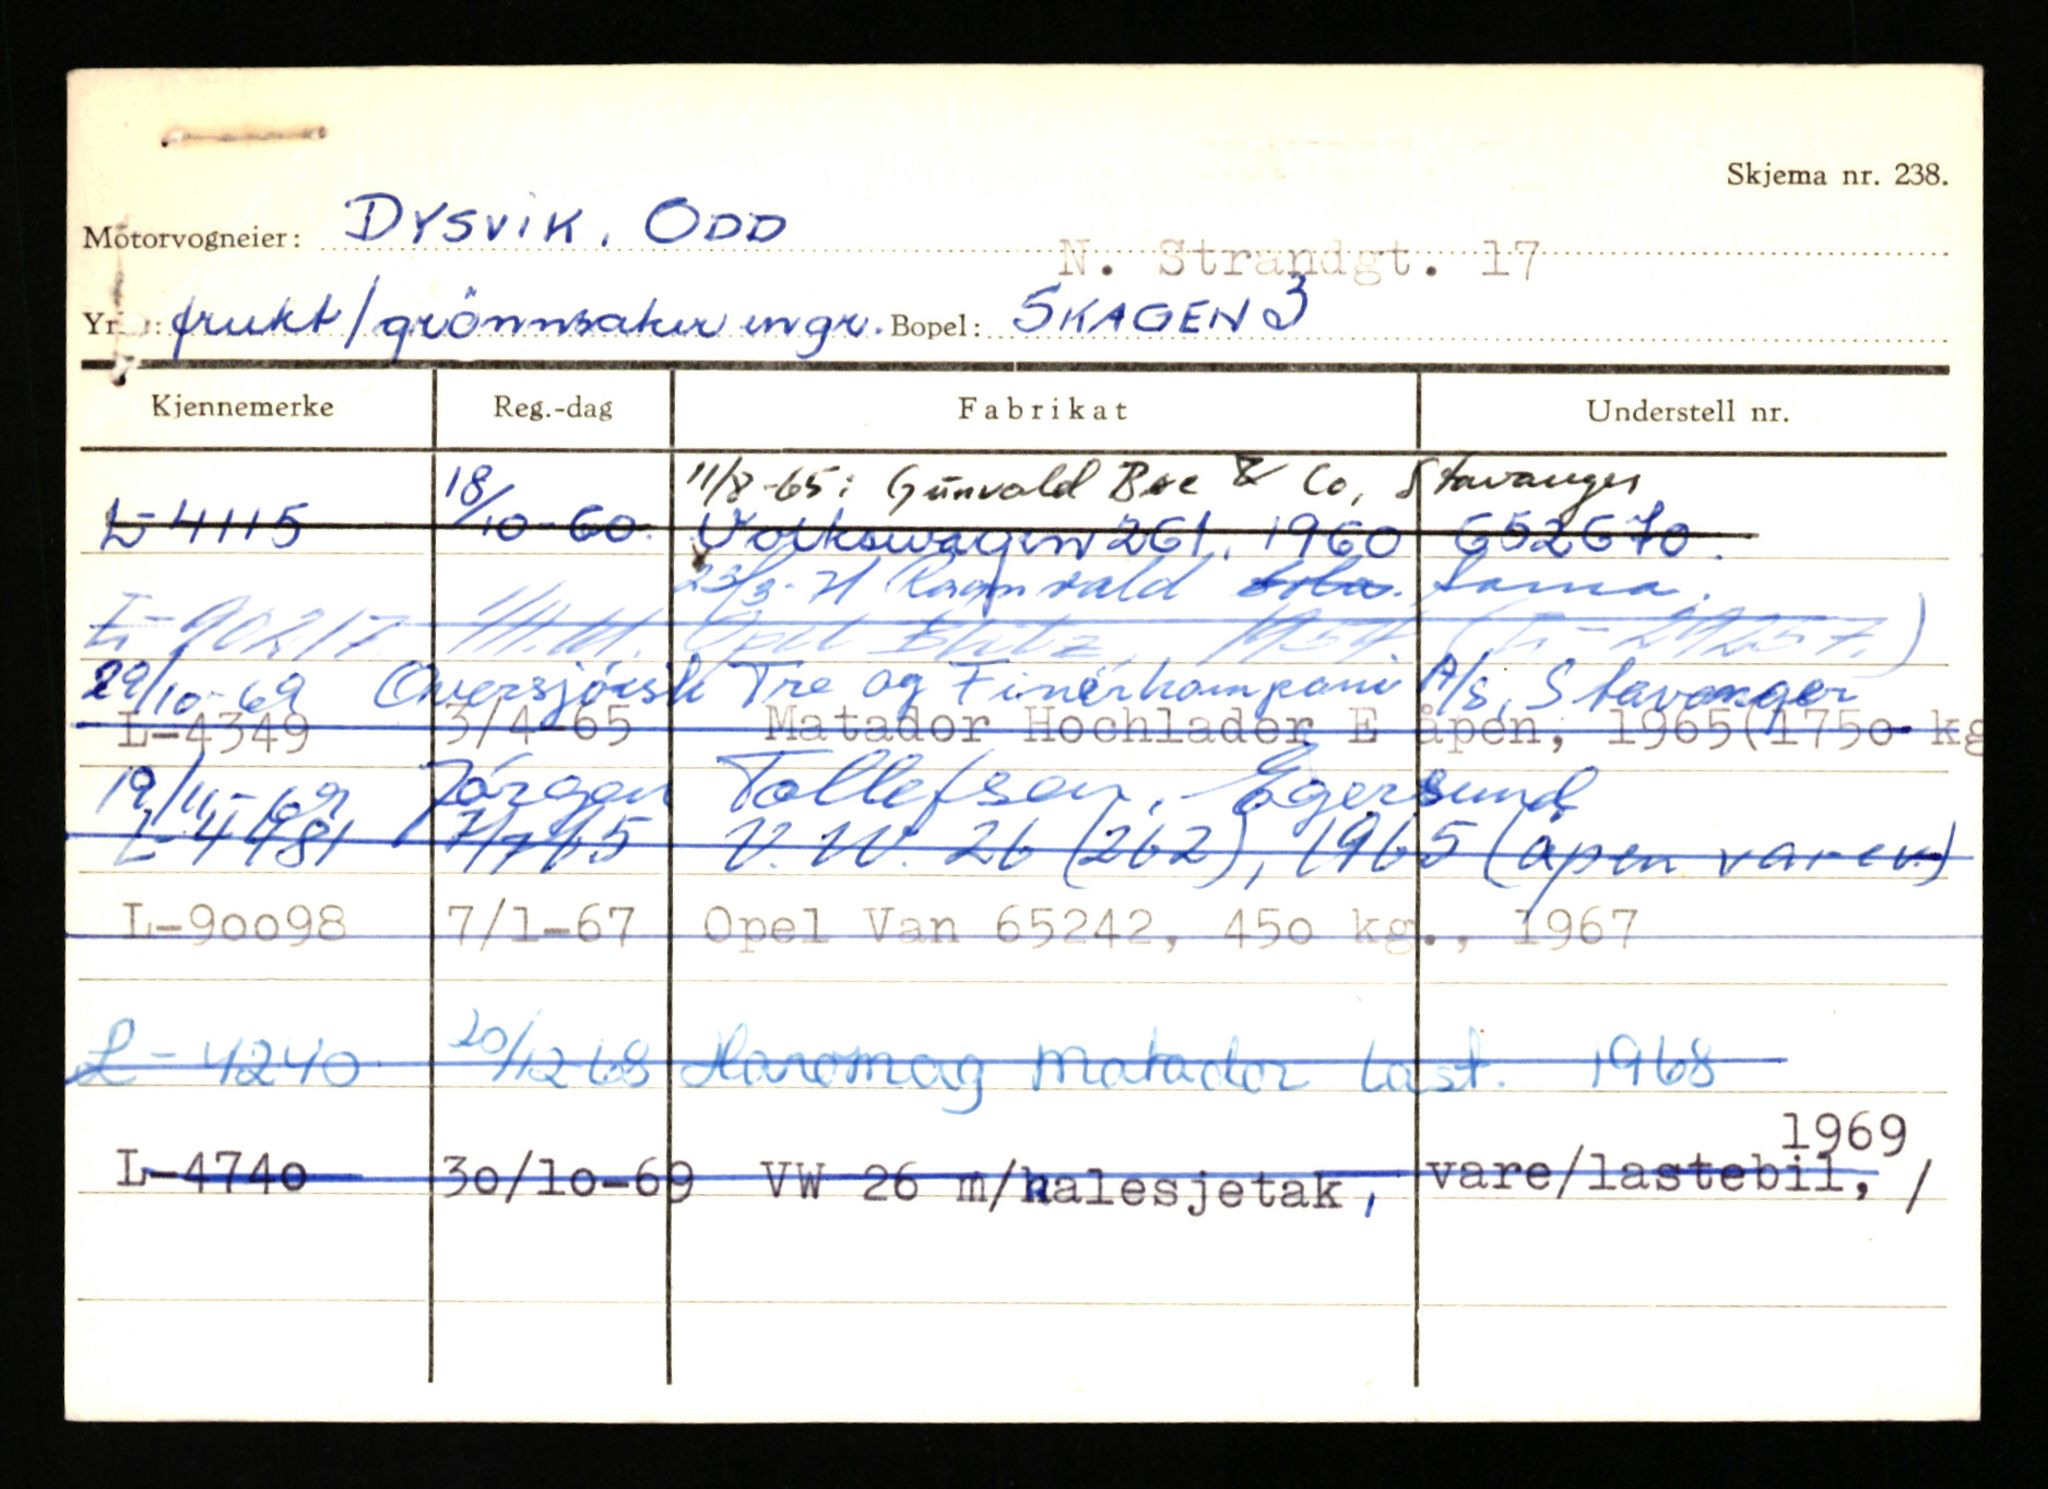 Skjema nr. 238.
Motorvogneier: DYSVIK, ODD
N. Strandgt. 17
Yr : frukt/grönnsaker engr. Bopel: SKAGEN 3
Kjennemerke Reg.-dag Fabrikat Understell nr.
11/8-65: Gunvald Boe & Co, Stavanger
L-4115 18/10-60. Volkswagen 261, 1960 652670.
23/3-71 Ragnvald Soma.
L-90217 Opel Blitz, 1954.
29/10-69 Oversjöisk Tre og Finérkompani A/S, Stavanger
L-4349 3/4-65 Matador Hochlader E åpen, 1965(1750 kg
19/11-69 Jörgen Tollefsen, Egersund
L-4481 7/7 65 V.W. 26 (262), 1965 (åpen varev.)
L-90098 7/1-67 Opel Van 65242, 450 kg., 1967
L-4240 20/12-68 Hanomag Matador Last. 1968
1969
L-4740 30/10-69 VW 26 m/halesjetak, vare/lastebil, /